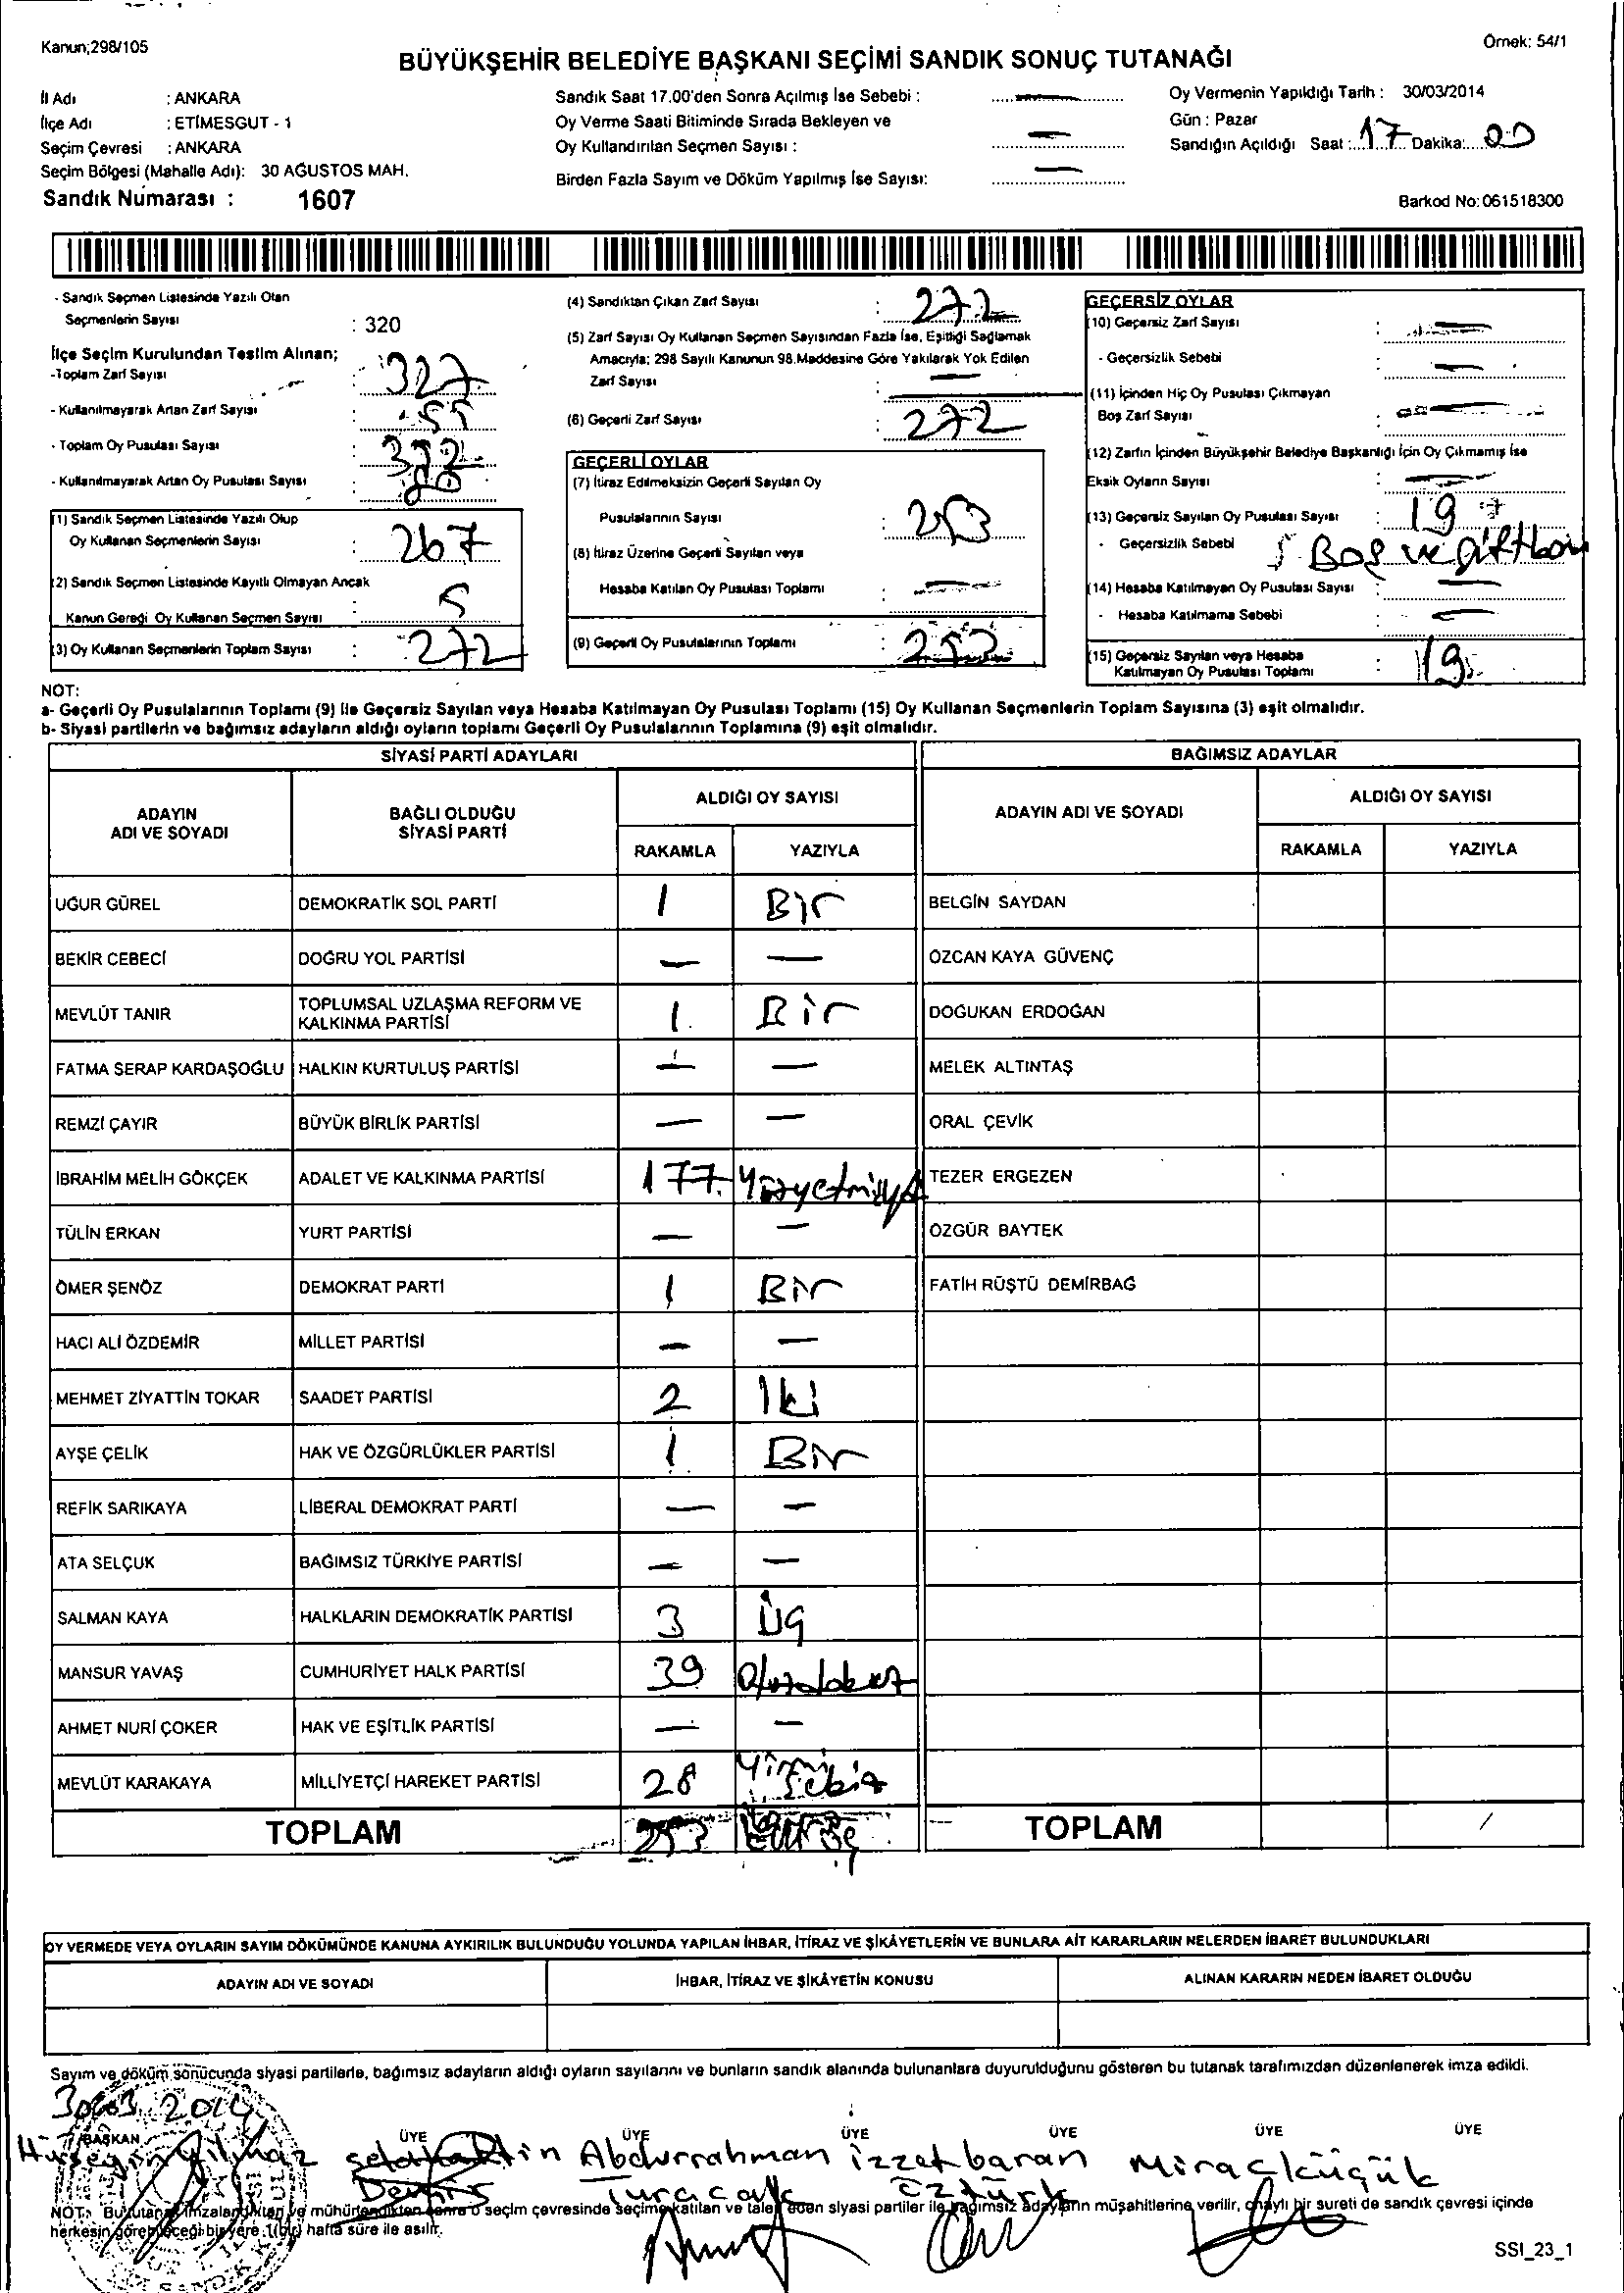 Kanun;298/105
Örnek: 54/1
BÜYÜKŞEHİR BELEDİYE BAŞKANI SEÇİMİ SANDIK SONUÇ TUTANAĞI
İl Adı : ANKARA
İlçe Adı : ETİMESGUT - 1
Seçim Çevresi : ANKARA
Seçim Bölgesi (Mahalle Adı): 30 AĞUSTOS MAH.
Sandık Numarası : 1607
Sandık Saat 17.00'den Sonra Açılmış İse Sebebi :
Oy Verme Saati Bitiminde Sırada Bekleyen ve
Oy Kullandırılan Seçmen Sayısı :
Birden Fazla Sayım ve Döküm Yapılmış İse Sayısı:
Oy Vermenin Yapıldığı Tarih : 30/03/2014
Gün : Pazar
Sandığın Açıldığı Saat : 17 Dakika: 00
Barkod No: 061518300
- Sandık Seçmen Listesinde Yazılı Olan
Seçmenlerin Sayısı : 320
İlçe Seçim Kurulundan Teslim Alınan;
-Toplam Zarf Sayısı : 327
- Kullanılmayarak Artan Zarf Sayısı : 55
- Toplam Oy Pusulası Sayısı :
- Kullanılmayarak Artan Oy Pusulası Sayısı :
(1) Sandık Seçmen Listesinde Yazılı Olup
Oy Kullanan Seçmenlerin Sayısı : 267
(2) Sandık Seçmen Listesinde Kayıtlı Olmayan Ancak
Kanun Gereği Oy Kullanan Seçmen Sayısı : 5
(3) Oy Kullanan Seçmenlerin Toplam Sayısı : 272
(4) Sandıktan Çıkan Zarf Sayısı : 272
(5) Zarf Sayısı Oy Kullanan Seçmen Sayısından Fazla İse, Eşitliği Sağlamak
Amacıyla; 298 Sayılı Kanunun 98.Maddesine Göre Yakılarak Yok Edilen
Zarf Sayısı : —
(6) Geçerli Zarf Sayısı : 272
GEÇERLİ OYLAR
(7) İtiraz Edilmeksizin Geçerli Sayılan Oy
Pusulalarının Sayısı : 253
(8) İtiraz Üzerine Geçerli Sayılan veya
Hesaba Katılan Oy Pusulası Toplamı : —
(9) Geçerli Oy Pusulalarının Toplamı : 253
GEÇERSİZ OYLAR
(10) Geçersiz Zarf Sayısı : —
- Geçersizlik Sebebi : —
(11) İçinden Hiç Oy Pusulası Çıkmayan
Boş Zarf Sayısı : —
(12) Zarfın İçinden Büyükşehir Belediye Başkanlığı İçin Oy Çıkmamış İse
Eksik Oyların Sayısı : —
(13) Geçersiz Sayılan Oy Pusulası Sayısı : 19
- Geçersizlik Sebebi : Boş ve
(14) Hesaba Katılmayan Oy Pusulası Sayısı : —
- Hesaba Katılmama Sebebi : —
(15) Geçersiz Sayılan veya Hesaba
Katılmayan Oy Pusulası Toplamı : 19
NOT:
a- Geçerli Oy Pusulalarının Toplamı (9) ile Geçersiz Sayılan veya Hesaba Katılmayan Oy Pusulası Toplamı (15) Oy Kullanan Seçmenlerin Toplam Sayısına (3) eşit olmalıdır.
b- Siyasi partilerin ve bağımsız adayların aldığı oyların toplamı Geçerli Oy Pusulalarının Toplamına (9) eşit olmalıdır.
SİYASİ PARTİ ADAYLARI BAĞIMSIZ ADAYLAR
ADAYIN ADI VE SOYADI BAĞLI OLDUĞU SİYASİ PARTİ ALDIĞI OY SAYISI ADAYIN ADI VE SOYADI ALDIĞI OY SAYISI
RAKAMLA YAZIYLA RAKAMLA YAZIYLA
UĞUR GÜREL DEMOKRATİK SOL PARTİ 1 Bir BELGİN SAYDAN
BEKİR CEBECİ DOĞRU YOL PARTİSİ — — ÖZCAN KAYA GÜVENÇ
MEVLÜT TANIR TOPLUMSAL UZLAŞMA REFORM VE KALKINMA PARTİSİ 1 Bir DOĞUKAN ERDOĞAN
FATMA SERAP KARDAŞOĞLU HALKIN KURTULUŞ PARTİSİ — — MELEK ALTINTAŞ
REMZİ ÇAYIR BÜYÜK BİRLİK PARTİSİ — — ORAL ÇEVİK
İBRAHİM MELİH GÖKÇEK ADALET VE KALKINMA PARTİSİ 177 Yüzyetmişyedi TEZER ERGEZEN
TÜLİN ERKAN YURT PARTİSİ — — ÖZGÜR BAYTEK
ÖMER ŞENÖZ DEMOKRAT PARTİ 1 Bir FATİH RÜŞTÜ DEMİRBAĞ
HACI ALİ ÖZDEMİR MİLLET PARTİSİ — —
MEHMET ZİYATTİN TOKAR SAADET PARTİSİ 2 İki
AYŞE ÇELİK HAK VE ÖZGÜRLÜKLER PARTİSİ 1 Bir
REFİK SARIKAYA LİBERAL DEMOKRAT PARTİ — —
ATA SELÇUK BAĞIMSIZ TÜRKİYE PARTİSİ — —
SALMAN KAYA HALKLARIN DEMOKRATİK PARTİSİ 3 Üç
MANSUR YAVAŞ CUMHURİYET HALK PARTİSİ 39 Otuzdokuz
AHMET NURİ ÇOKER HAK VE EŞİTLİK PARTİSİ — —
MEVLÜT KARAKAYA MİLLİYETÇİ HAREKET PARTİSİ 28 Yirmi Sekiz
TOPLAM 253 TOPLAM
OY VERMEDE VEYA OYLARIN SAYIM DÖKÜMÜNDE KANUNA AYKIRILIK BULUNDUĞU YOLUNDA YAPILAN İHBAR, İTİRAZ VE ŞİKÂYETLERİN VE BUNLARA AİT KARARLARIN NELERDEN İBARET BULUNDUKLARI
ADAYIN ADI VE SOYADI İHBAR, İTİRAZ VE ŞİKÂYETİN KONUSU ALINAN KARARIN NEDEN İBARET OLDUĞU
Sayım ve döküm sonucunda siyasi partilerle, bağımsız adayların aldığı oyların sayılarını ve bunların sandık alanında bulunanlara duyurulduğunu gösteren bu tutanak tarafımızdan düzenlenerek imza edildi.
30.03.2014
BAŞKAN ÜYE ÜYE ÜYE ÜYE ÜYE ÜYE
Hüseyin Yılmaz Abdurrahman izzet baran Miraç küçük
Öztürk
NOT: Bu tutanak imzalandıktan ve mühürlendikten sonra o seçim çevresinde seçime katılan ve talep eden siyasi partiler ile bağımsız adayların müşahitlerine verilir, onaylı bir sureti de sandık çevresi içinde
herkesin görebileceği bir yere 1(bir) hafta süre ile asılır.
SSI_23_1